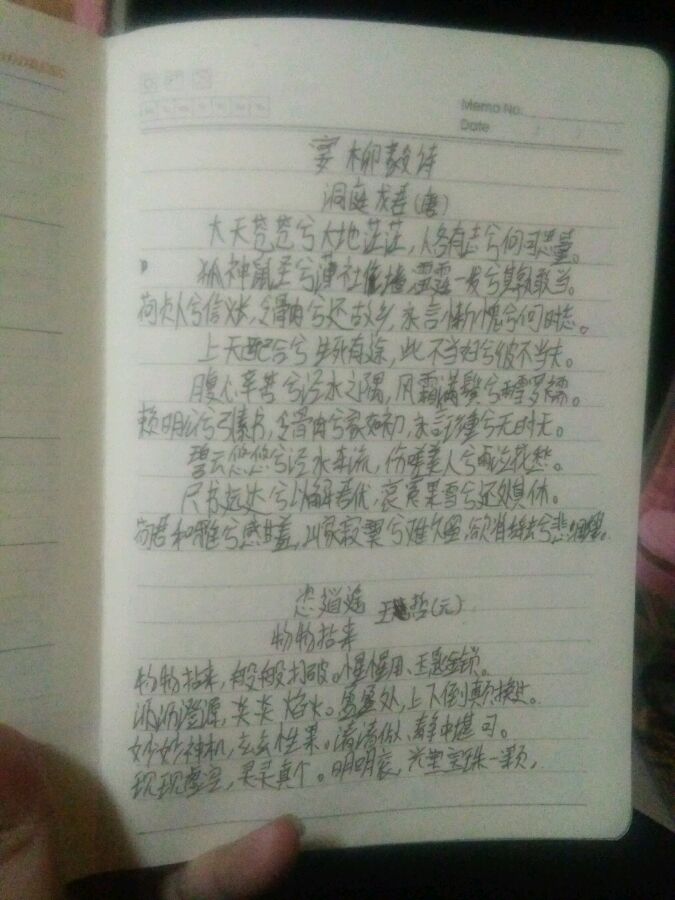 Memo No.
Date
宴柳毅诗
洞庭龙君(唐)
大天苍苍兮大地茫茫,人各有志兮何可思量。
狐神鼠圣兮薄社依墙,雷霆一发兮其孰敢当。
荷贞人兮信义长,令骨肉兮还故乡,永言惭愧兮何时忘。
上天配合兮生死有途,此不当妇兮彼不当夫。
腹心辛苦兮泾水之隅,风霜满鬓兮雨雪罗襦。
赖明公兮引素书,令骨肉兮家如初,永言珍重兮无时无。
碧云悠悠兮泾水东流,伤嗟美人兮雨泣花愁。
尺书远达兮以解君忧,哀冤果雪兮还处其休。
荷君和雅兮感甘羞,山家寂寞兮难久留,欲将辞去兮悲绸缪。
恣逍遥 王喆(元)
物物拈来
物物拈来,般般打破。惺惺用、玉匙金锁。
沥沥澄源,炎炎焰火。盈盈处,上下倒颠换过。
妙妙神机,玄玄性果。清清做、静中堪可。
现现虚空,灵灵真个。明明哀,光里宝珠一颗,